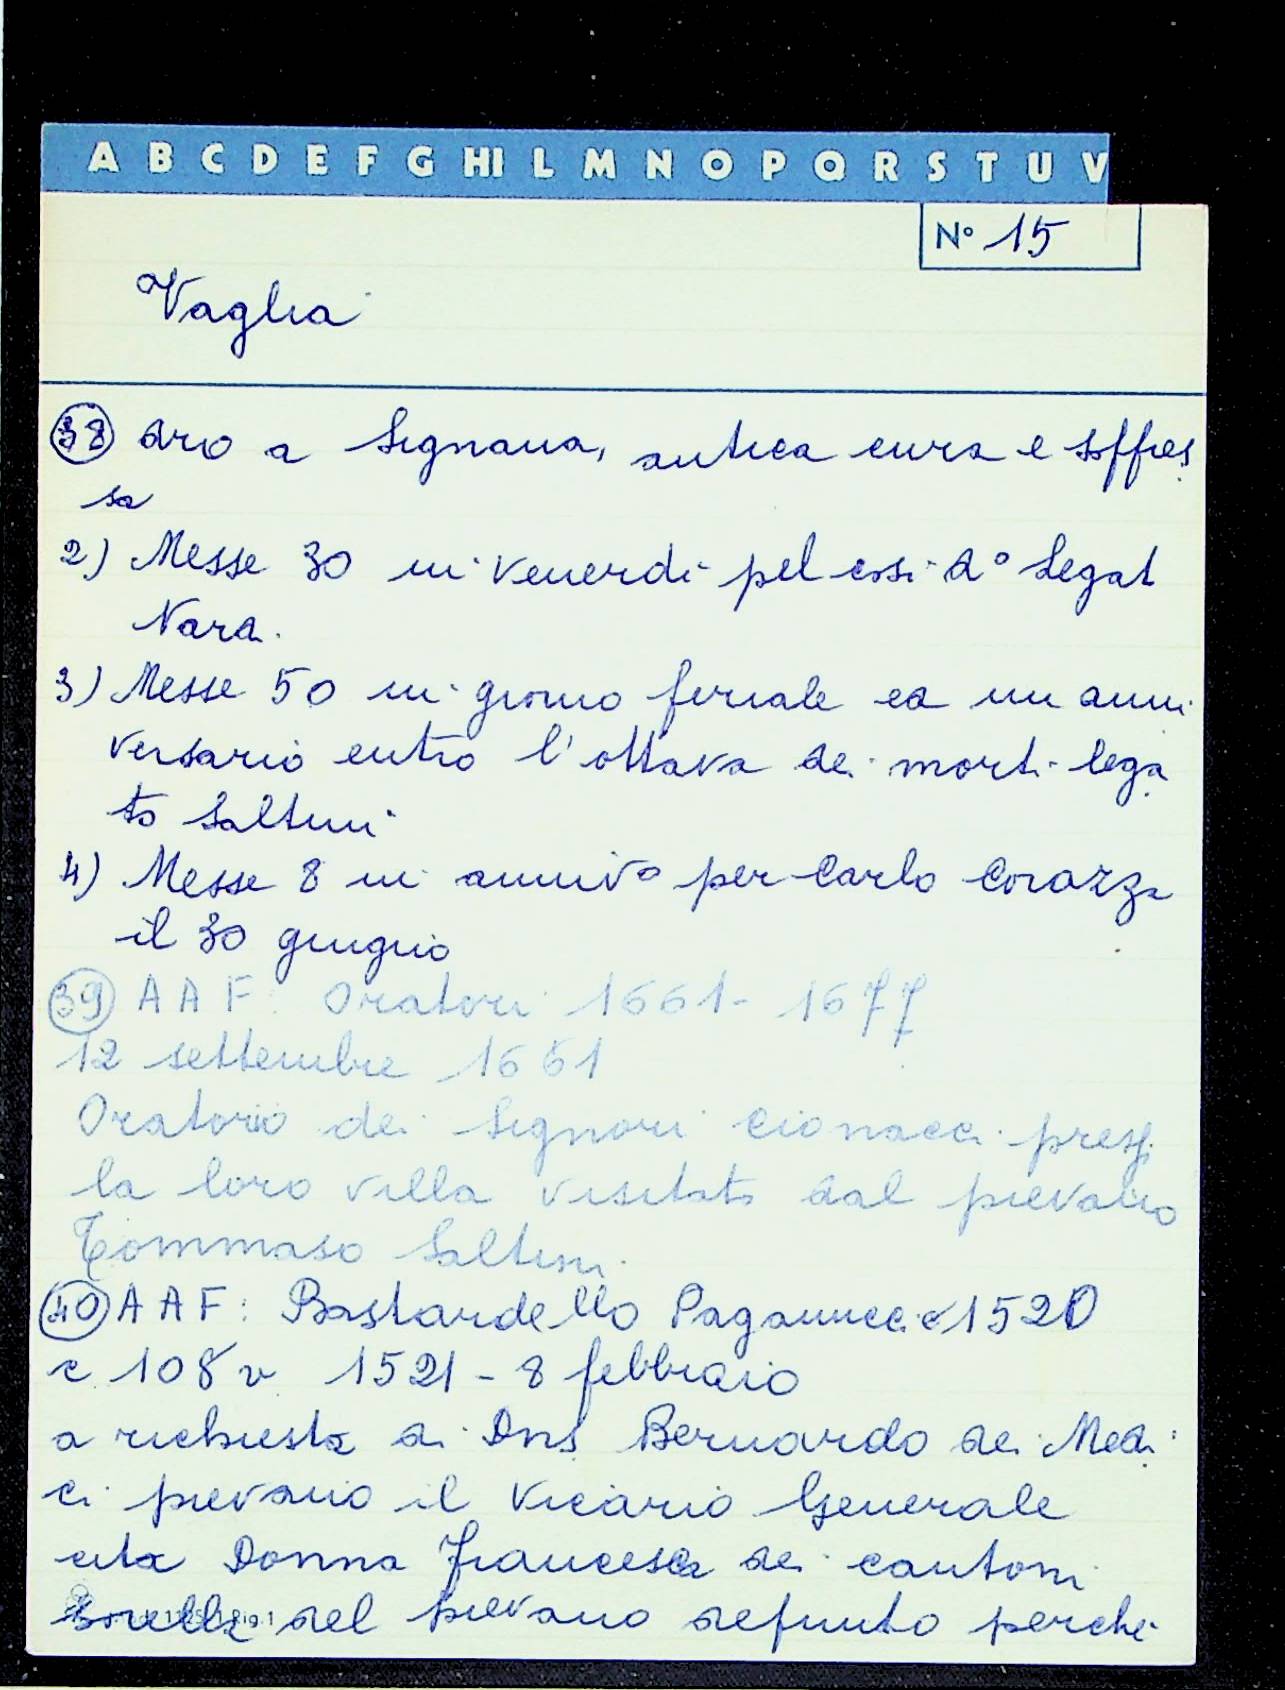 A B C D E F G HI L M N O P Q R S T U V
N° 15
Vaglia
38 dro a Signana, antica cura e soffres
sa
2) Messe 30 in venerdi pel Legat
Nara.
3) Messe 50 in giorno feriale ed un anni
versario entro l'ottava dei morti lega
to Saltini
4) Messe 8 in anniv° per Carlo Corazza
il 30 giugno
39 AAF: Oratori 1661-1677
12 settembre 1661
Oratorio dei Signori Cionacci presso
la loro villa visitato dal pievano
Tommaso Saltini.
40 AAF: Bastardello Paganucci 1520
c 108 v 1521 - 8 febbraio
a richiesta di Dns Bernardo dei Medi
ci pievano il Vicario Generale
cita Donna Francesca dei cantoni
sorella del pievano defunto perchè